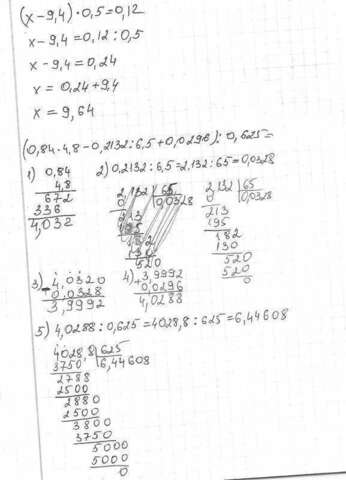 (x-9,4)·0,5=0,12
x-9,4=0,12:0,5
x-9,4=0,24
x=0,24+9,4
x=9,64
(0,84·4,8-0,2132:6,5+0,0296):0,625=
1) 0,84
4,8
672
336
4,032
2) 0,2132:6,5=2,132:65=0,0328
2,132 | 65
0,0328
0
213
195
182
130
520
2,132 | 65
0 0,0328
213
195
182
130
520
520
0
3) 4,0320
-0,0328
3,9992
4) 3,9992
+0,0296
4,0288
5) 4,0288:0,625=4028,8:625=6,44608
4028,8 | 625
3750 6,44608
2788
2500
2880
2500
3800
3750
5000
5000
0